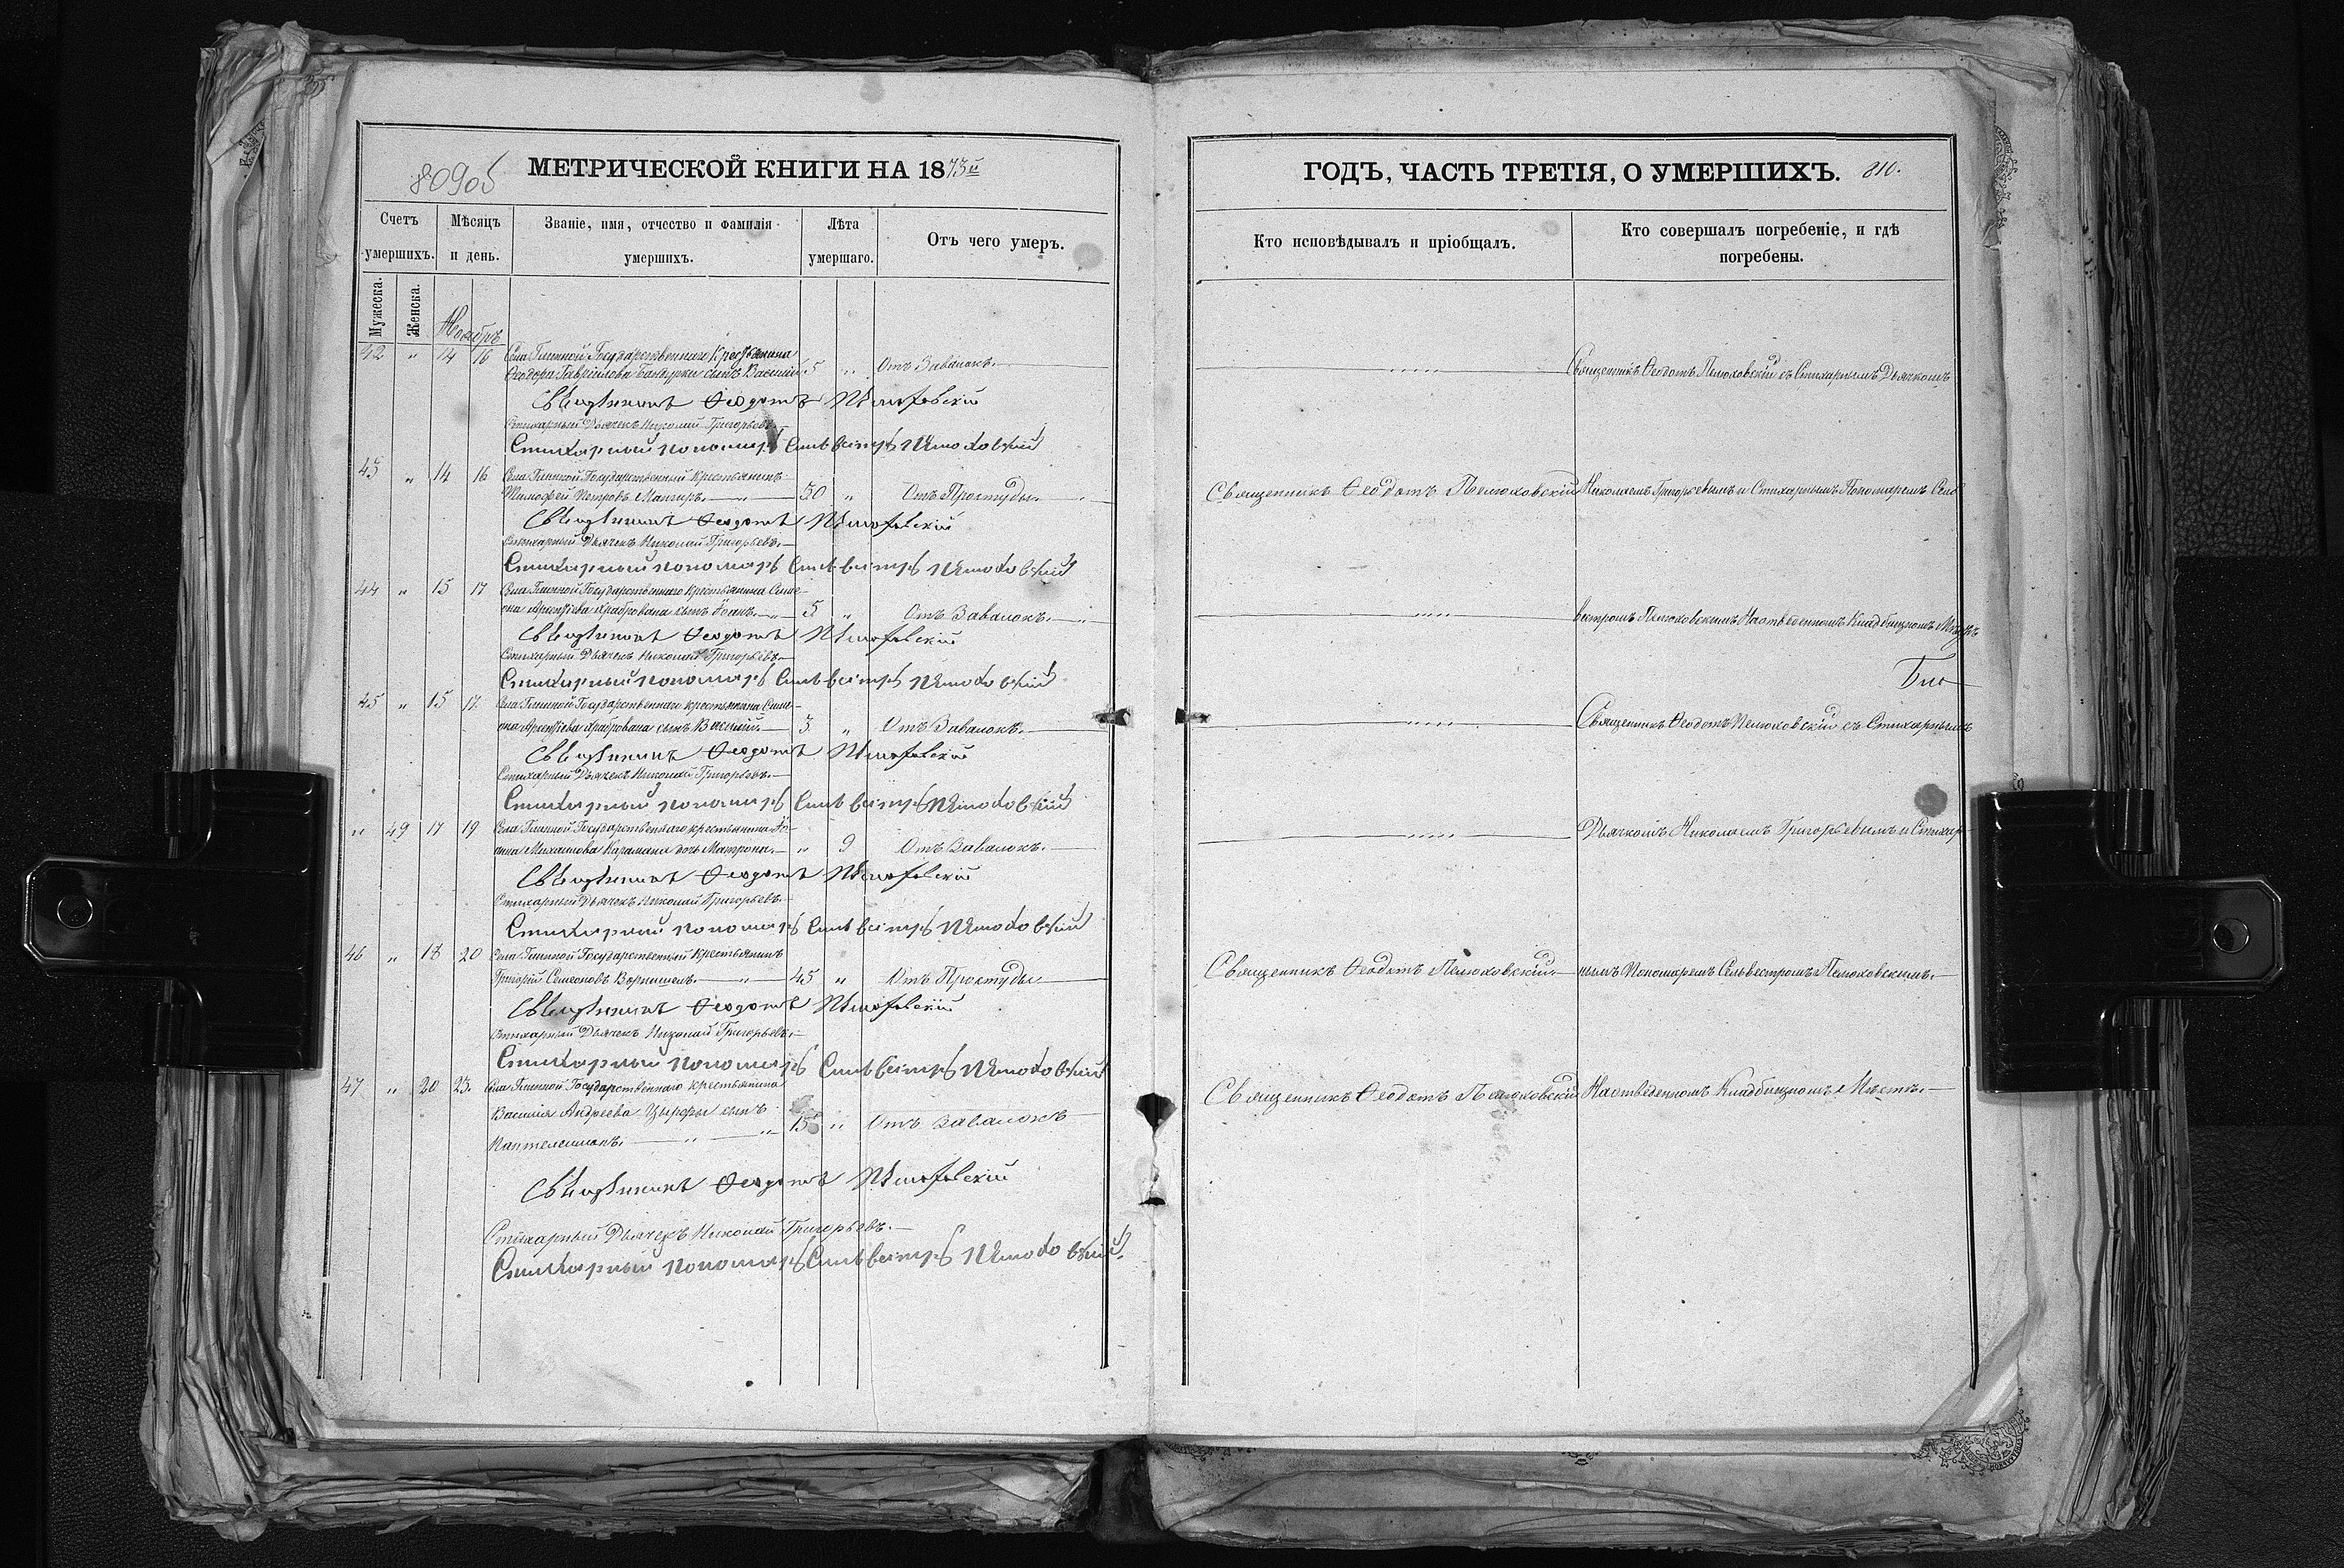 809об
МЕТРИЧЕСКОЙ КНИГИ НА 1873й
Счетъ умершихъ.
Мѣсяцъ и день.
Званіе, имя, отчество и фамилія умершихъ.
Лѣта умершаго.
Отъ чего умеръ.
Мужеска.
Женска.
Ноябрь
42 " 14 16 Села Глинной Государственнаго Крестьянина
Ѳеодора Гаврилова Бандурки сынъ Василій 5 " Отъ Завалокъ.
Священникъ Ѳеодотъ Пелюховскій
Стихарный Дьячекъ Николай Григорьевъ
Стихарный пономарь Сильвестръ Пелюховскій
43 " 14 16 Села Глинной Государственный Крестьянинъ
Тимофей Петровъ 50 " Отъ Простуды.
Священникъ Ѳеодотъ Пелюховскій
Стихарный Дьячекъ Николай Григорьевъ.
Стихарный пономарь Сильвестръ Пелюховскій
44 " 15 17 Села Глинной Государственнаго крестьянина Симе-
она сынъ Іоанъ. 5 " Отъ Завалокъ.
Священникъ Ѳеодотъ Пелюховскій
Стихарный Дьячекъ Николай Григорьевъ.
Стихарный пономарь Сильвестръ Пелюховскій
45 " 15 17 Села Глинной Государственнаго крестьянина Симе-
она сынъ Василій. 3 " Отъ Завалокъ.
Священникъ Ѳеодотъ Пелюховскій
Стихарный Дьячекъ Николай Григорьевъ.
Стихарный пономарь Сильвестръ Пелюховскій
" 49 17 19 Села Глинной Государственнаго крестьянина Іо-
анна Михаилова Карамана дочь Матрона. " 9 Отъ Завалокъ.
Священникъ Ѳеодотъ Пелюховскій
Стихарный Дьячекъ Николай Григорьевъ.
Стихарный пономарь Сильвестръ Пелюховскій
46 " 18 20 Села Глинной Государственный Крестьянинъ
Григорій Семеоновъ 45 " Отъ Простуды
Священникъ Ѳеодотъ Пелюховскій
Стихарный Дьячекъ Николай Григорьевъ.
Стихарный пономарь Сильвестръ Пелюховскій
47 " 20 23. Села Глинной Государственнаго крестьянина
Василія Андреева Цырфы сынъ
Пантелеимонъ. 15 " Отъ Завалокъ
Священникъ Ѳеодотъ Пелюховскій
Стихарный Дьячекъ Николай Григорьевъ.
Стихарный пономарь Сильвестръ Пелюховскій.
ГОДЪ, ЧАСТЬ ТРЕТІЯ, О УМЕРШИХЪ. 810.
Кто исповѣдывалъ и пріобщалъ.
Кто совершалъ погребеніе, и гдѣ погребены.
Священникъ Ѳеодотъ Пелюховскій съ Стихарнымъ Дьячкомъ
Священникъ Ѳеодотъ Пелюховскій Николаемъ Григорьевымъ и Стихарнымъ Пономаремъ Сель
вестромъ Пелюховскимъ На отведенномъ Кладбищномъ Мѣстѣ
Священникъ Ѳеодотъ Пелюховскій съ Стихарнымъ
Дьячкомъ Николаемъ Григорьевымъ и Стихар-
Священникъ Ѳеодотъ Пелюховскій нымъ Пономаремъ Сельвестромъ Пелюховскимъ.
Священникъ Ѳеодотъ Пелюховскій На отведенномъ Кладбищномъ Мѣстѣ.